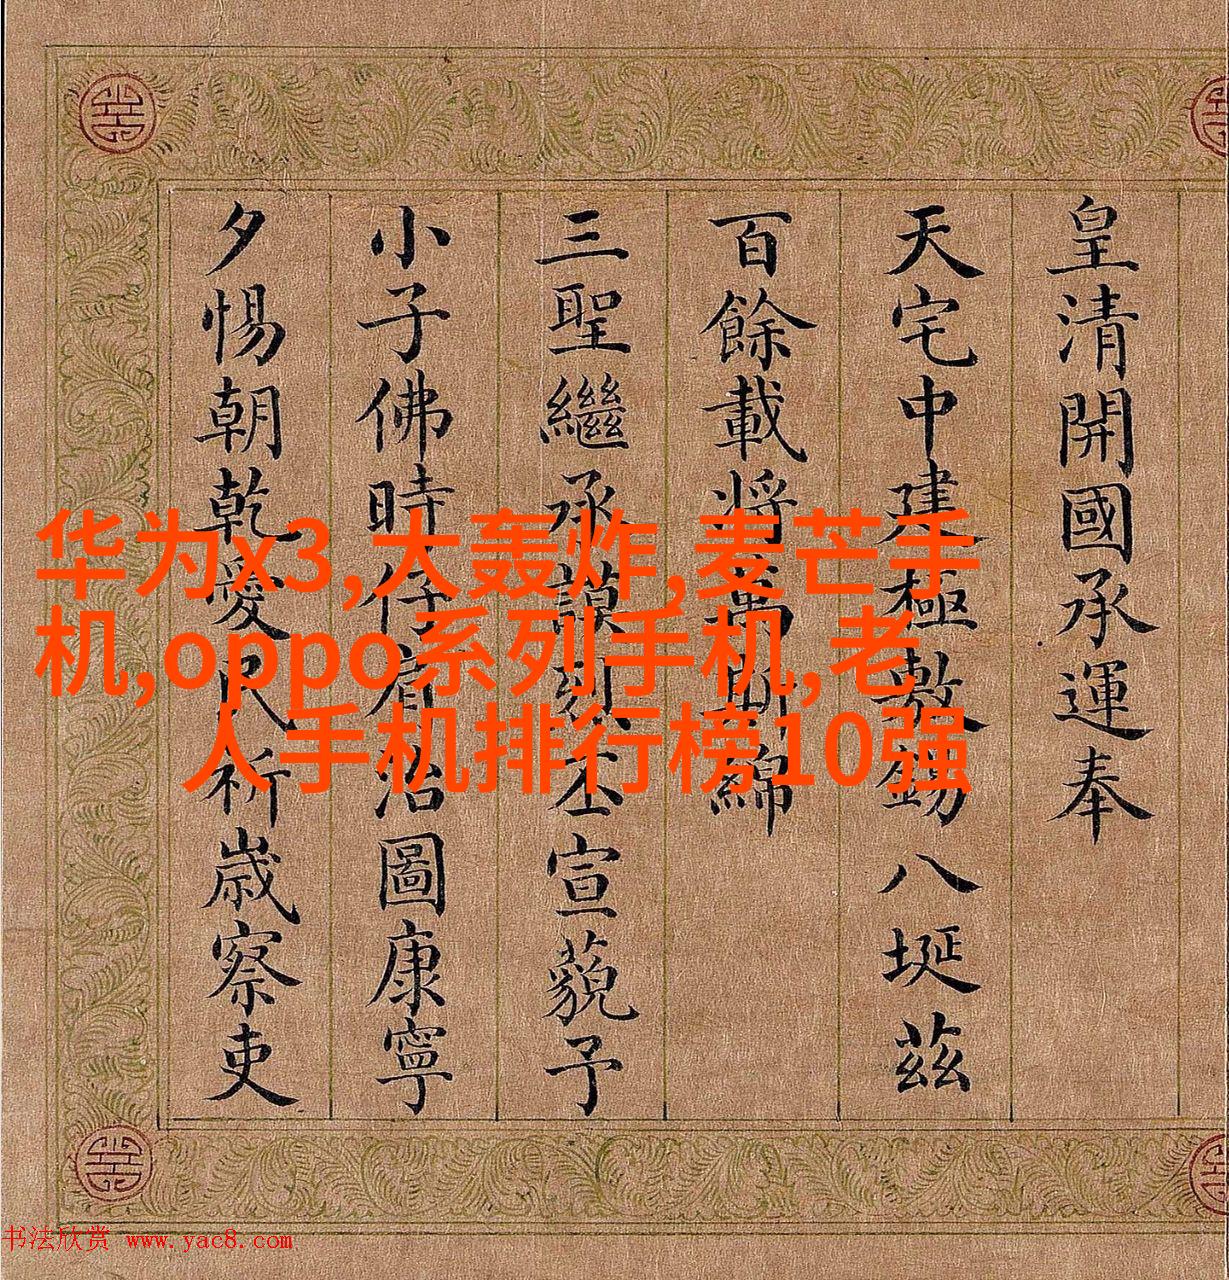 皇清開國承運奉
天宅中建極敷錫八埏茲
百餘載將萬斯綿
三聖繼承謨烈丕宣藐予
小子佛時仔肩治圖康寧
夕惕朝乾愛民祈歲察吏
华为x3,大轰炸,麦芒手
机,oppo系列手机,老
人手机排行榜10强
书法欣赏 www.yac8.com